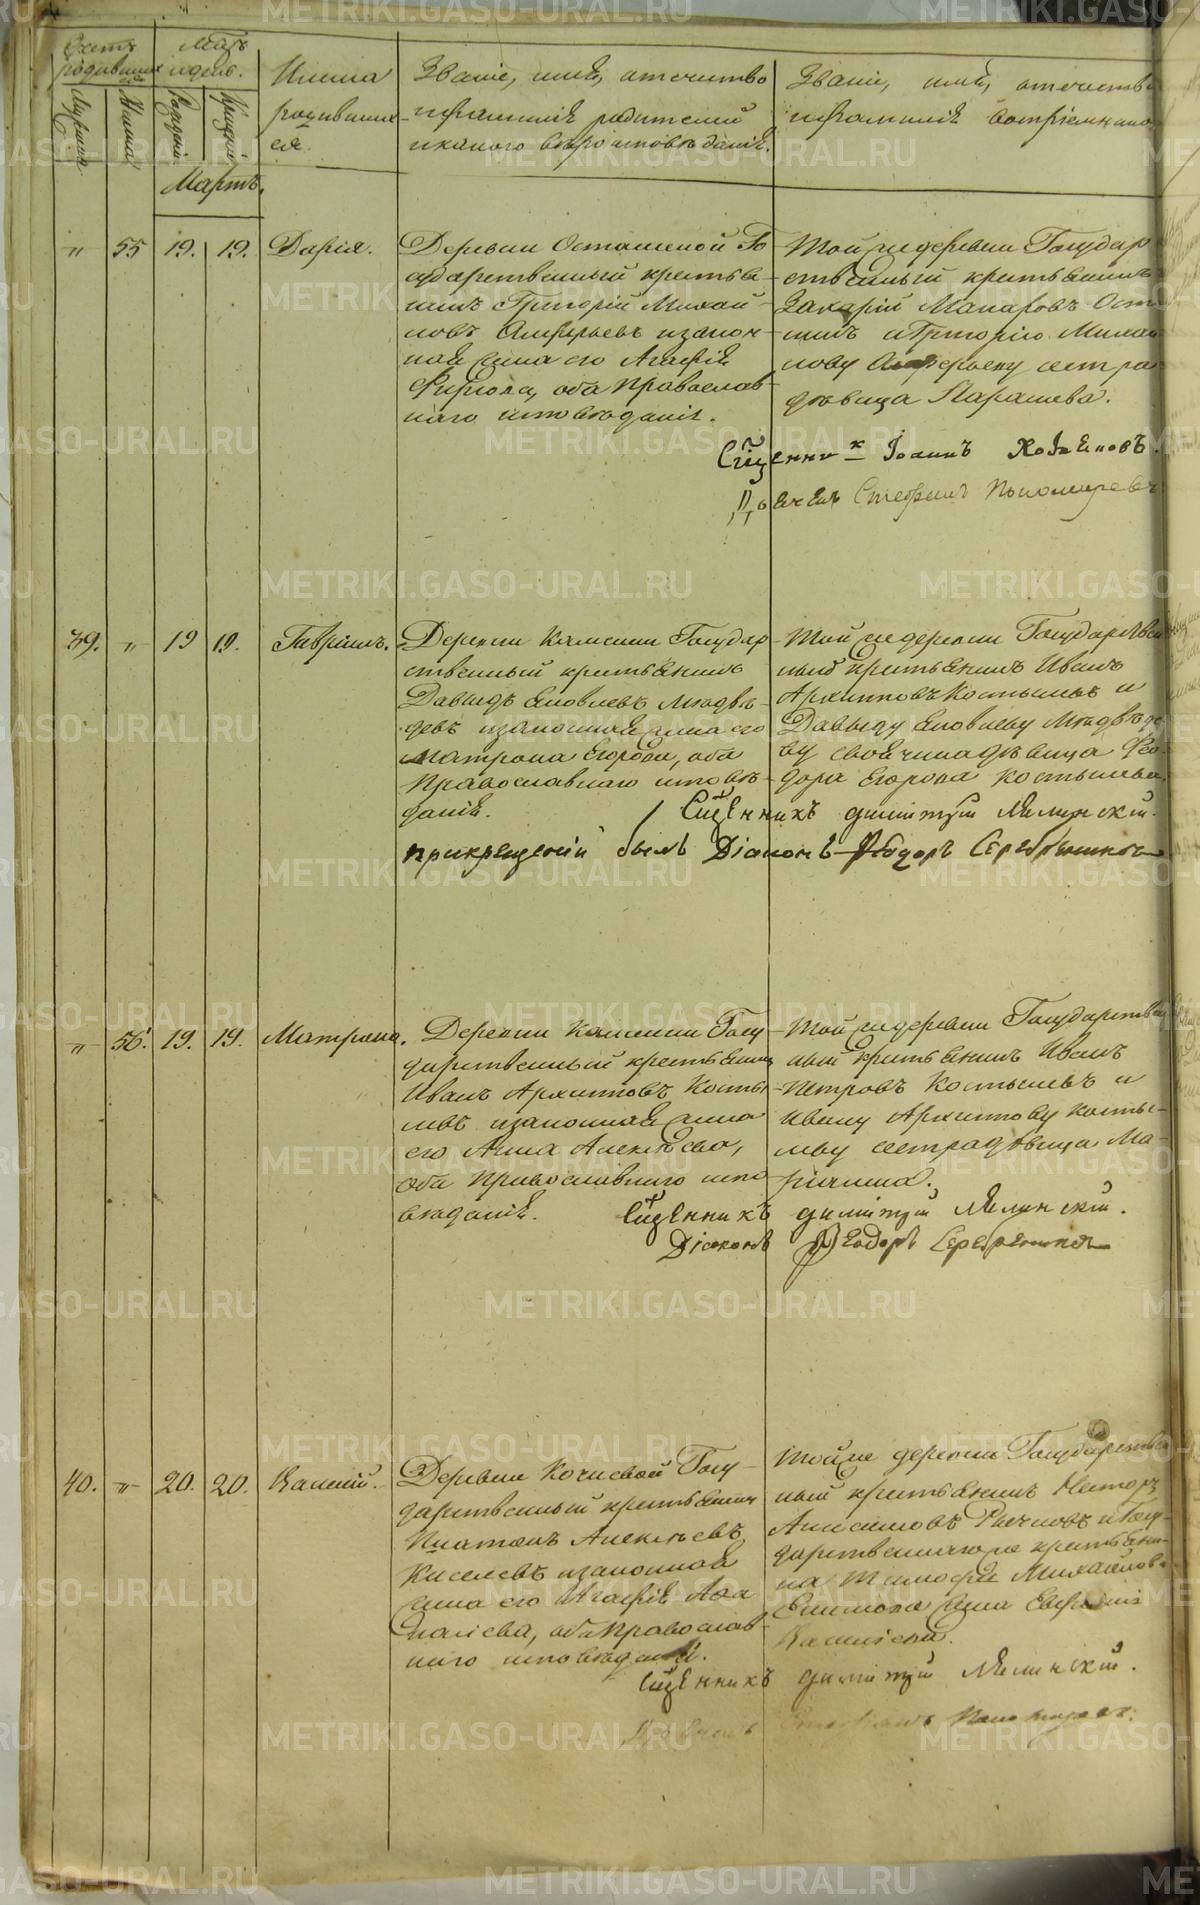 Счетъ родившихся
Мѣс. и день.
Имена родившихся.
Званіе, имя, отечество
и фамилія родителей
и какого вѣроисповѣданія.
Званіе, имя, отечество
и фамилія воспріемниковъ
Мартъ.
" 55 19. 19. Дарія.
Деревни Осташевой Го
сударственный крестья-
нинъ Григорій Михай-
ловъ Алферьевъ и закон-
ная жена его Агафія
Фирсова, оба православ-
наго исповѣданія.
Той же деревни Государ
ственный крестьянинъ
Захарій Макаровъ
и Григорію Михаи
лову Алферьеву сестра
дѣвица Парасцева.
Сщенникъ Іоаннъ
Стефанъ Пономаревъ
39. " 19 19. Гавріилъ.
Деревни Камешки Государ
ственный крестьянинъ
Давыдъ Яковлевъ Медвѣ-
девъ и законная жена его
Матрона Егорова, оба
православнаго исповѣ-
данія.
Той же деревни Государствен
ный крестьянинъ Иванъ
Архиповъ Костылевъ и
Давыду Яковлеву Медвѣде
ву своячина дѣвица Фео-
дора Егорова Костылева
Сщенникъ Димитрій
при крещеніи былъ Діаконъ Феодоръ Серебренников
" 56. 19. 19. Матрона.
Деревни Камешки Госу
дарственный крестьянинъ
Иванъ Архиповъ Косты
левъ и законная жена
его Анна Алексѣева,
оба православнаго испо
вѣданія.
Той же деревни Государствен
ный крестьянинъ Иванъ
Петровъ Костылевъ и
Ивану Архипову Косты-
леву сестра дѣвица Ма-
ріанна.
Сщенникъ Димитрій
Діаконъ Феодоръ Серебренников
40. " 20. 20. Василій.
Деревни Кочневой Госу-
дарственный крестьянинъ
Платонъ Алексѣевъ
Киселевъ и законная
жена его Агафія Аѳа
насіева, оба православ-
наго исповѣданія.
Той же деревни Государствен
ный крестьянинъ Несторъ
Анисимовъ и Госу-
дарственнаго же крестьяни-
на Тимофея Михайлова
жена Евфимія
Васильева.
Сщенникъ Димитрій
Стефанъ Пономаревъ
METRIKI.GASO-URAL.RU